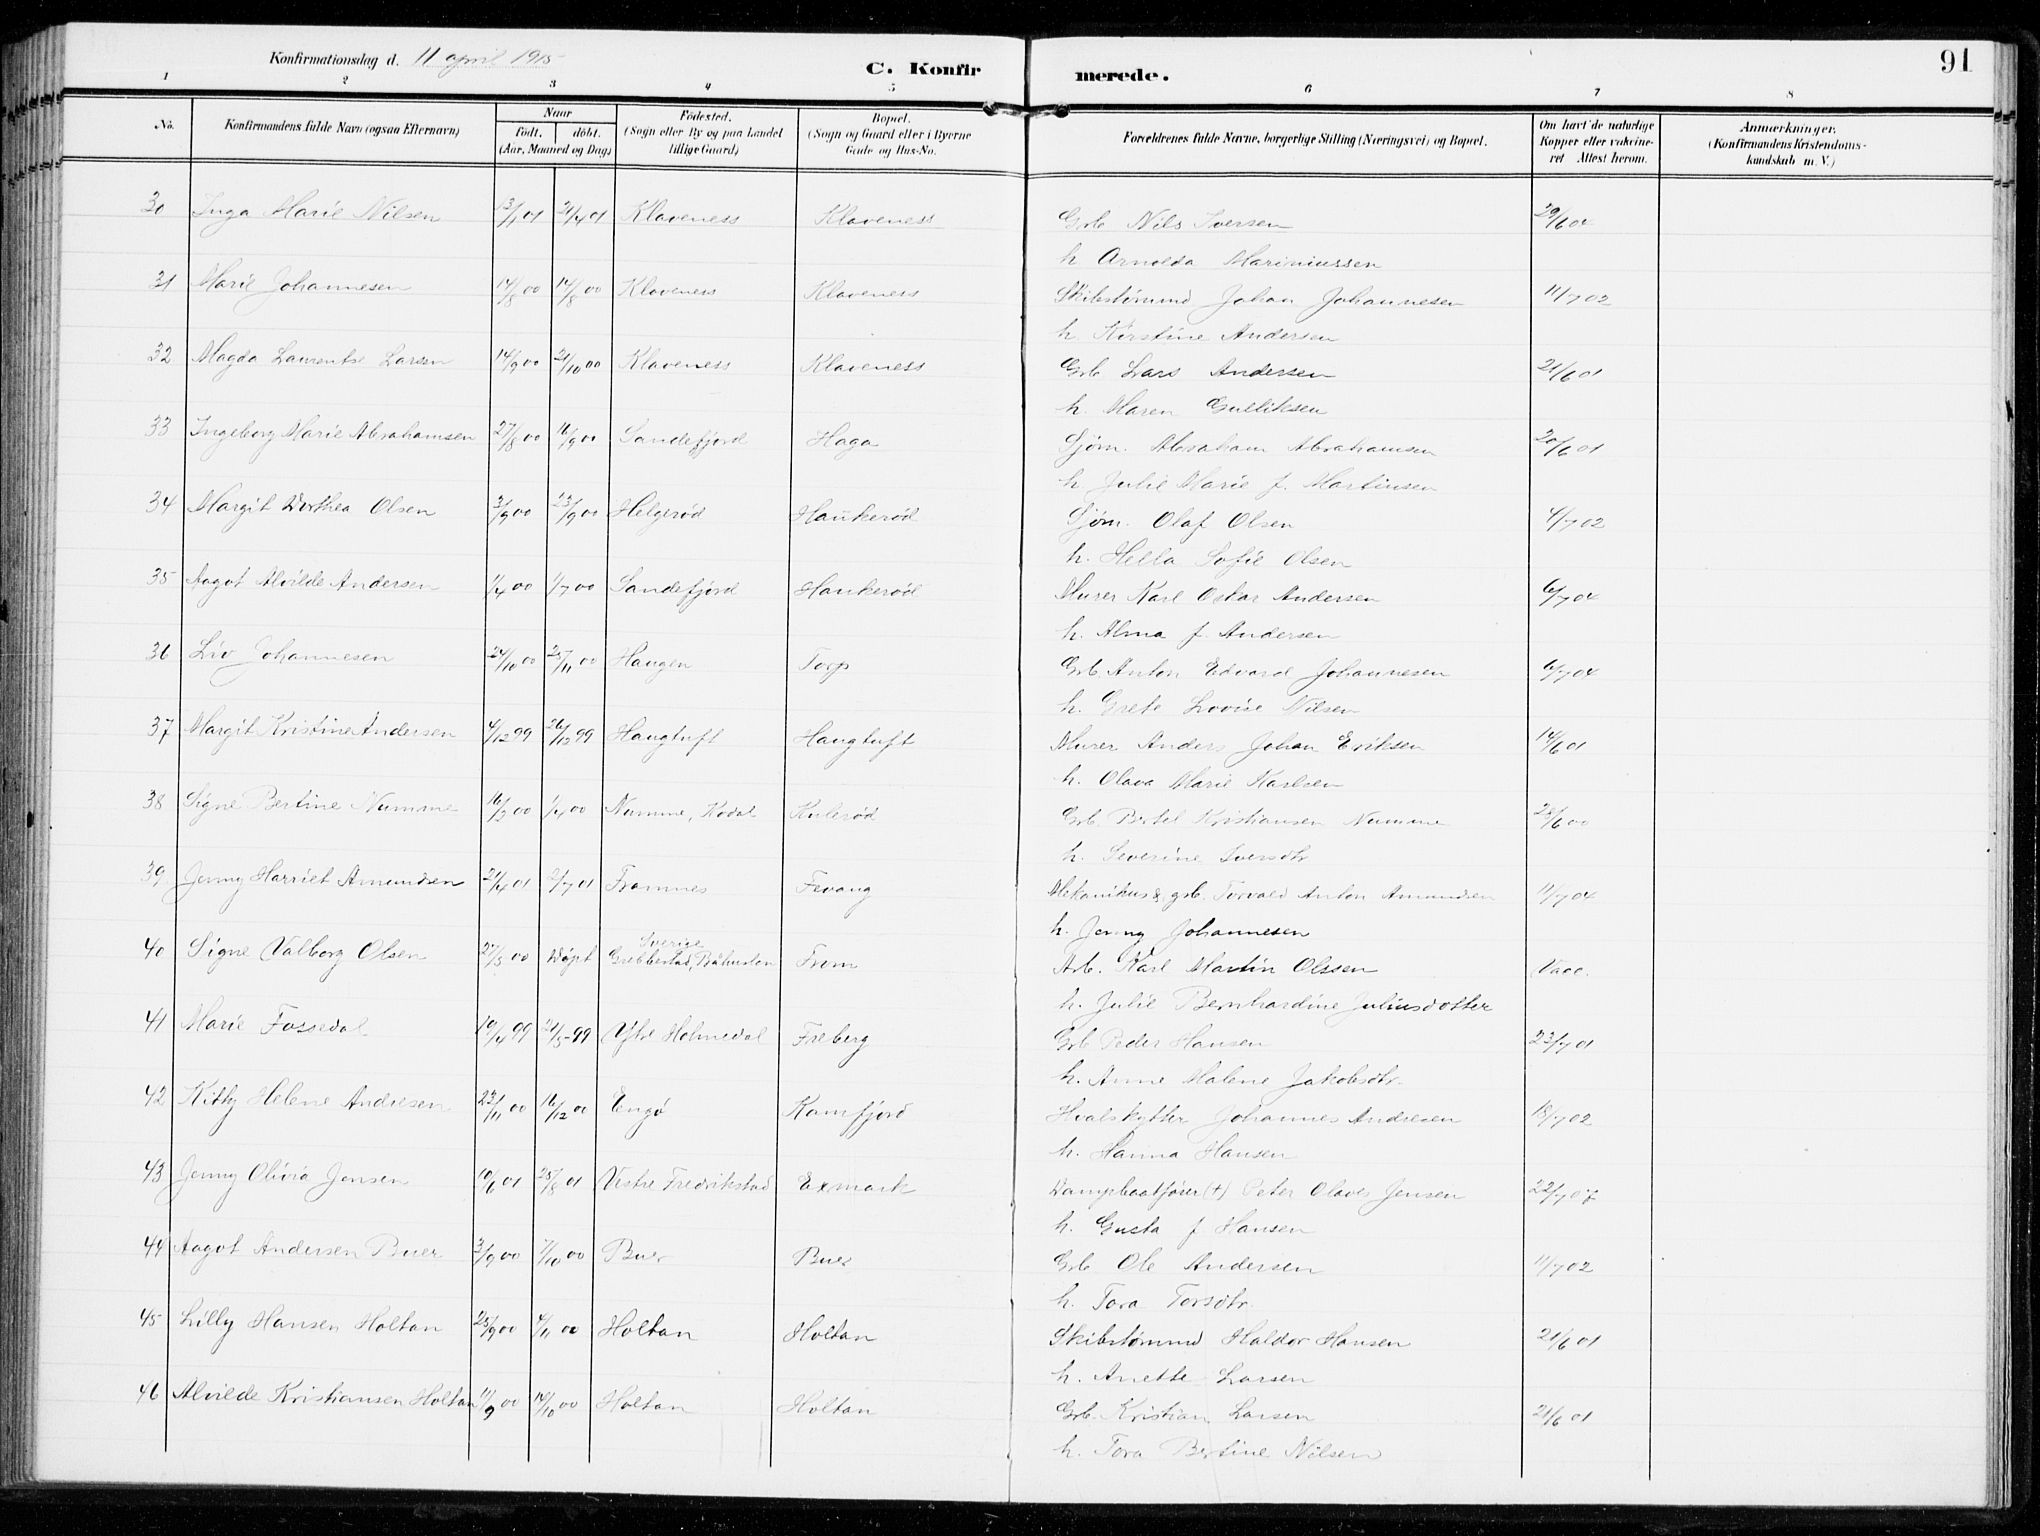 Konfirmationsdag d. 11 april 1915
C. Konfir
merede.
91
1 2 3 4 5 6 7 8
No. Konfirmandens fulde Navn (ogsaa Efternavn) Naar født. døbt. (Aar, Maaned og Dag) Fødested. (Sogn eller By og paa Landet tillige Gaard) Bopæl. (Sogn og Gaard eller i Byerne Gade og Hus-No. Forældrenes fulde Navne, borgerlige Stilling (Næringsvei) og Bopæl. Om havt de naturlige Kopper eller vakcineret Attest herom. Anmærkninger. (Konfirmandens Kristendomskundskab m. V.)
30 Inga Marie Nilsen 13/1 01 21/4 01 Klaveness Klaveness Grb Nils Iversen 29/6 04
h Arnolda Mariniussen
31 Marie Johannesen 14/8 00 14/8 00 Klaveness Klaveness Skibstømmd Johan Johannesen 11/7 02
h. Kirstine Andersen
32 Magda Laurentse Larsen 14/9 00 21/10 00 Klaveness Klaveness Grb Lars Andersen 21/6 01
h. Maren Gulliksen
33 Ingeborg Marie Abrahamsen 27/8 00 16/9 00 Sandefjord Haga Sjøm. Abraham Abrahamsen 20/6 01
h. Julie Marie f. Martinsen
34 Margit Dorthea Olsen 3/9 00 23/9 00 Helgerød Haukerød Sjøm. Olaf Olsen 4/7 02
h. Hella Sofie Olsen
35 Aagot Alvilde Andersen 1/4 00 1/7 00 Sandefjord Haukerød Murer Karl Oskar Andersen 6/7 04
h. Alma f. Andersen
36 Liv Johannesen 24/10 00 25/11 00 Haugen Torp Grb. Anton Edvard Johannesen 6/7 04
h. Grete Lovise Nilsen
37 Margit Kristine Andersen 4/12 99 26/12 99 Haugtuft Haugtuft Murer Anders Johan Eriksen 14/6 01
h. Olava Marie Karlsen
38 Signe Bertine Numme 16/2 00 1/4 00 Numme, Kodal Kulerød Grb. Bertel Kristiansen Numme 28/6 00
h. Severine Iversdtr
39 Jenny Harriet Amundsen 21/4 01 2/7 01 Framnes Fevang Mekanikus & grb. Torvald Anton Amundsen 11/7 04
h. Jenny Johannesen
40 Signe Valborg Olsen 27/3 00 Døpt Sverige Grebbestad, Båhuslän From Arb. Karl Martin Olssen Vacc.
h. Julie Bernhardine Juliusdotter
41 Marie Fossedal 19/4 99 21/5-99 Ytre Holmedal Freberg Grb Peder Hansen 23/7 01
h. Anne Malene Jakobsdtr.
42 Kitty Helene Andresen 23/11 00 16/12 00 Engø Kamfjord Hvalskytter Johannes Andresen 18/7 02
h. Hanna Hansen
43 Jenny Olivia Jensen 10/6 01 25/8 01 Vestre Fredrikstad Exmark Dampbaatfører (+) Peter Olaves Jensen 22/7 07
h. Gusta f. Hansen
44 Aagot Andersen Buer 3/9 00 7/10 00 Buer Buer Grb Ole Andersen 11/7 02
h. Tora Torsdtr.
45 Lilly Hansen Holtan 25/9 00 4/11 00 Holtan Holtan Skibstømmd Haldor Hansen 21/6 01
h. Anette Larsen
46 Alvilde Kristiansen Holtan 11/9 00 14/10 00 Holtan Holtan Grb. Kristian Larsen 21/6 01
h. Tora Bertine Nilsen